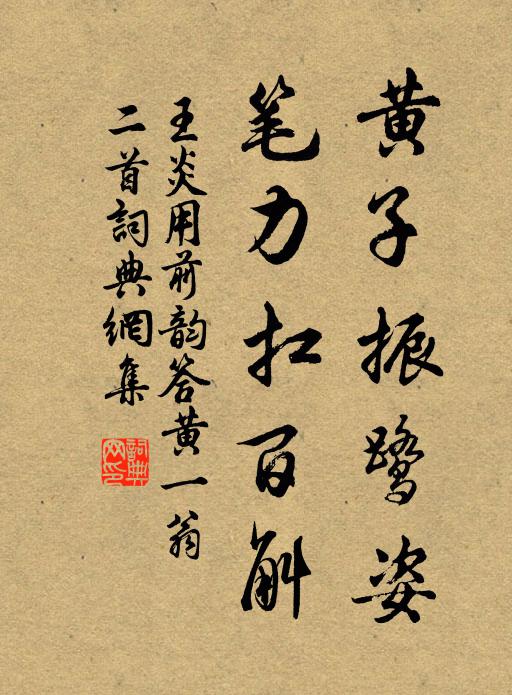 黄子振鹭姿
笔力扛百斛
王炎用前韵答黄一翁
二首詞典網集
詞典
网印